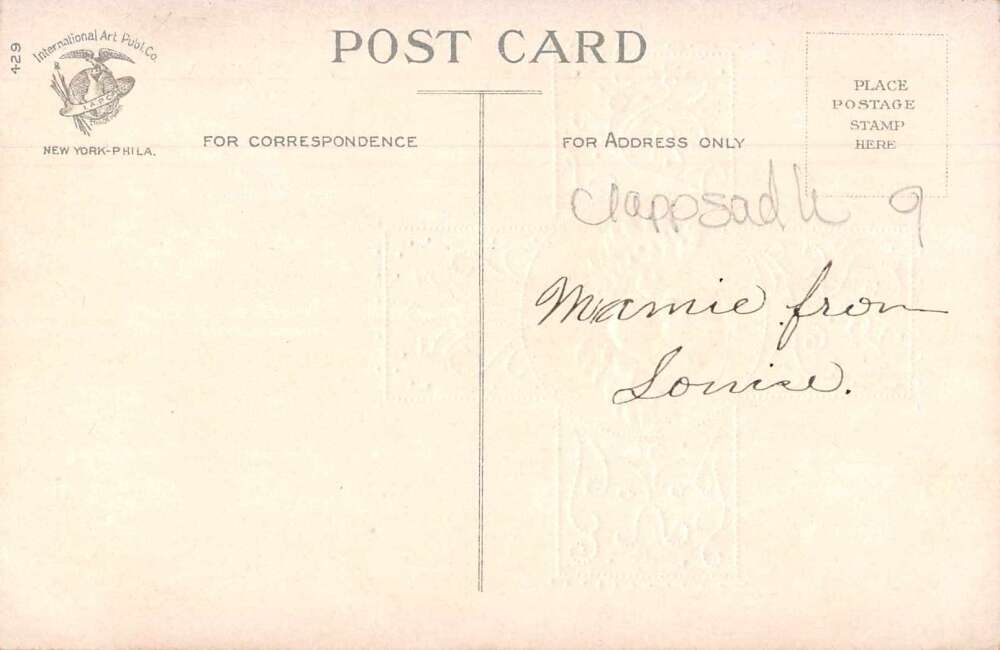 429
International Art Publ. Co.
I.A.P.C.
NEW YORK-PHILA.
POST CARD
FOR CORRESPONDENCE
FOR ADDRESS ONLY
PLACE
POSTAGE
STAMP
HERE
9
Mamie from
Louise.